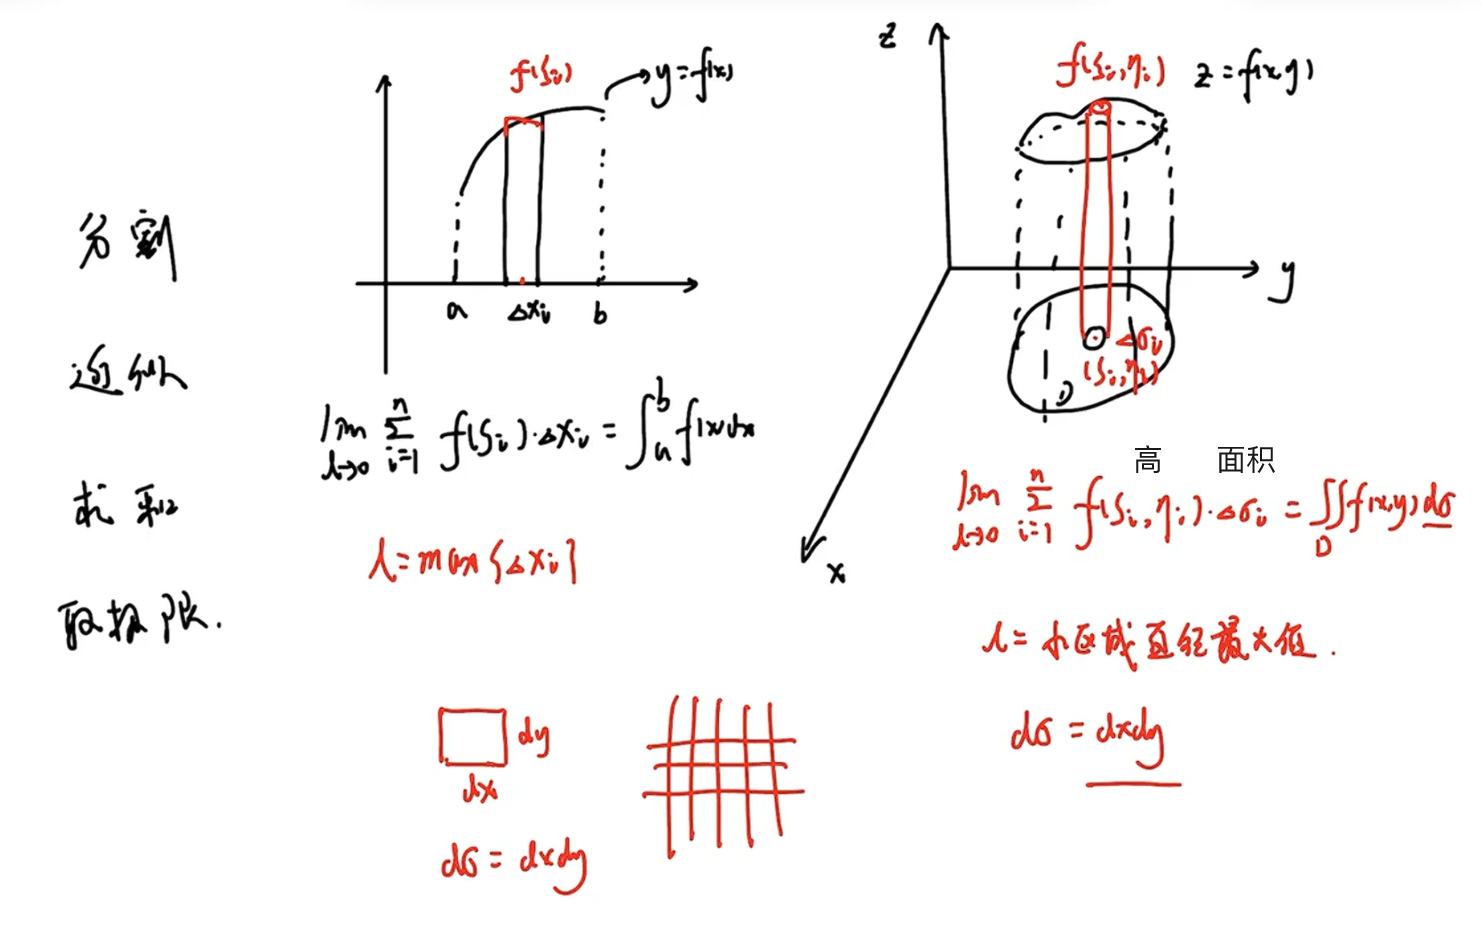 分割
近似
求和
取极限.
f(ξᵢ)
y=f(x)
a
Δxᵢ
b
lim λ→0 Σ i=1 n f(ξᵢ)·Δxᵢ = ∫ₐᵇ f(x)dx
λ=max{Δxᵢ}
z
f(ξᵢ,ηᵢ)
z=f(x,y)
y
x
Δσᵢ
(ξᵢ,ηᵢ)
D
高 面积
lim λ→0 Σ i=1 n f(ξᵢ,ηᵢ)·Δσᵢ = ∬ D f(x,y)dσ
λ=小区域直径最大值.
dσ = dxdy
dy
dx
dσ = dxdy